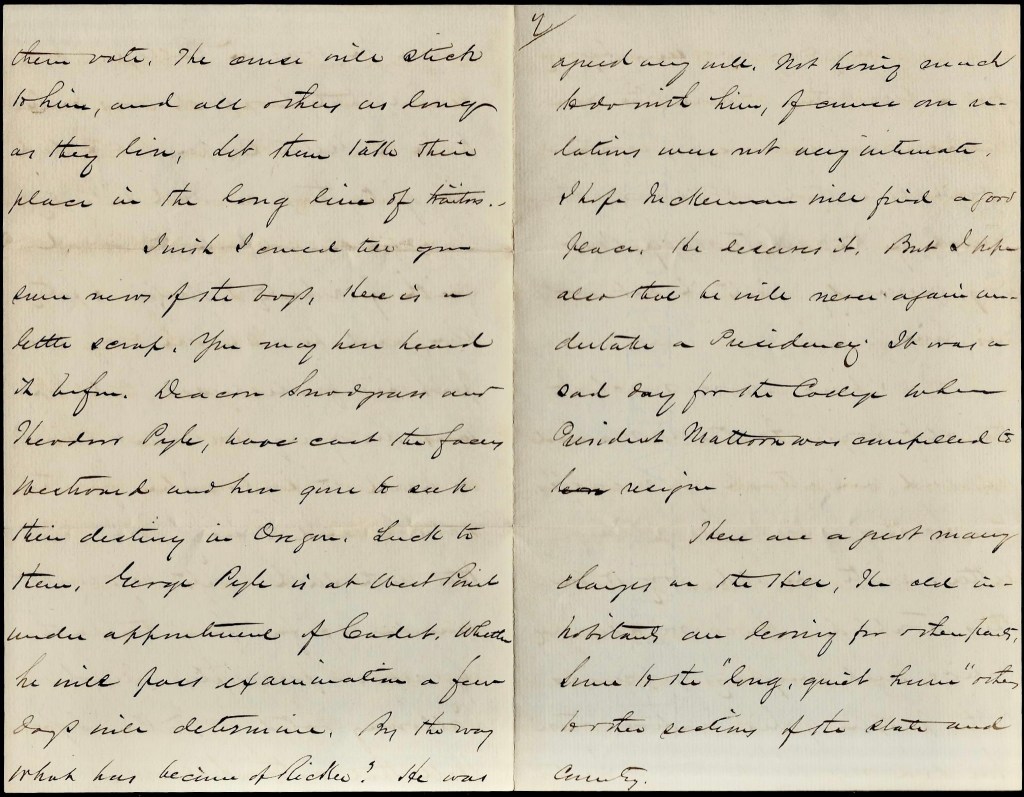 them vote. The curse will stick
to him, and all others as long
as they live. Let them take their
place in the long line of traitors.
I wish I could tell you
some news of the boys. Here is a
little scrap. You may have heard
it before. Deacon Snodgrass and
Theodore Pyle, have cast the faces
Westward and have gone to seek
their destiny in Oregon. Luck to
them. George Pyle is at West Point
under appointment of Cadet. Whether
he will pass examination a few
days will determine. By the way
what has become of ? He was
7
agreed very well. Not having much
to do with him, of course our re-
lations were not very intimate.
I hope will find a good
place. He deserves it. But I hope
also that he will never again un-
dertake a Presidency. It was a
sad day for the College when
President Mattoon was compelled to
resign
There are a great many
changes on the Hill, The old in-
habitants are leaving for other parts,
Some to the "long, quiet home" others
to other sections of the state and
country.